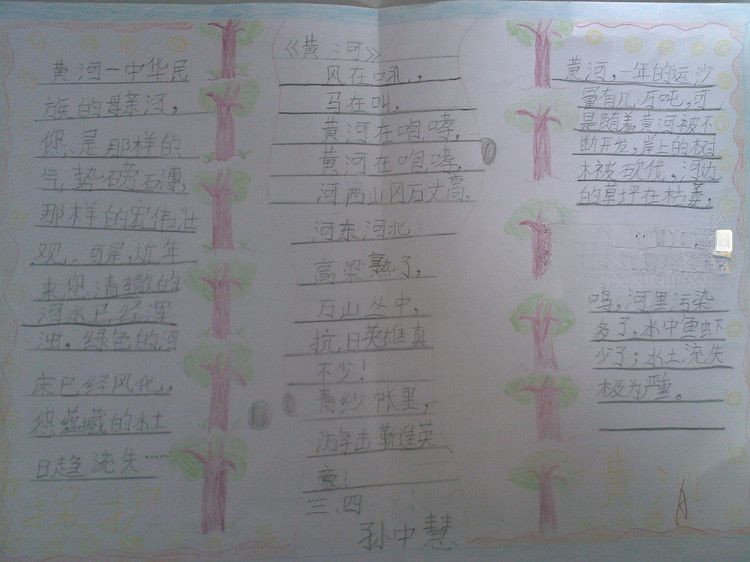 黄河一中华民
族的母亲河，
您是那样的
气势磅礴，
那样的宏伟壮
观。可是，近年
来您清澈的
河水已经浑
浊。绿色的河
床已经风化，
您蕴藏的水土
日趋流失……
保护
《黄河》
风在吼，
马在叫，
黄河在咆哮，
黄河在咆哮，
河西山冈万丈高，
河东河北
高梁熟了，
万山丛中，
抗日英雄真
不少！
青纱帐里，
游击逞英
豪！
三、四
孙中慧
黄河，一年的运沙
量有几万吨，可
是随着黄河被不
断开发，岸上的树
木被砍伐。河边
的草坪在枯萎。
鸣，河里污染
多了，水中鱼虾
少了；水土流失
极为严重。
黄河